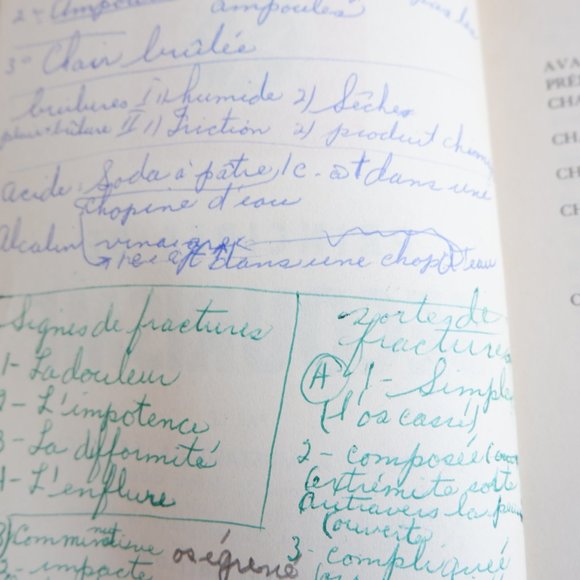 2- Ampoules
ampoules
3° Chair brûlée
brûlures I 1) humide 2) Sèches
II 1) Friction 2) produit chimi
acide: Soda à pâtre, 1 c. à t dans une
chopine d'eau
Alcalin vinaigre
dans une chop d'eau
Signes de fractures
1- La douleur
2- L'impotence
3- La difformité
4- L'enflure
sortes de
fractures
A 1- Simple
(l'os cassé)
2- composée
extrémité sorte
autravers la peau
(ouverte)
3- compliquée
B) Comminutive os égrené
2- impacte
AVA
PRÉ
CHA
CHA
CH
CH
C